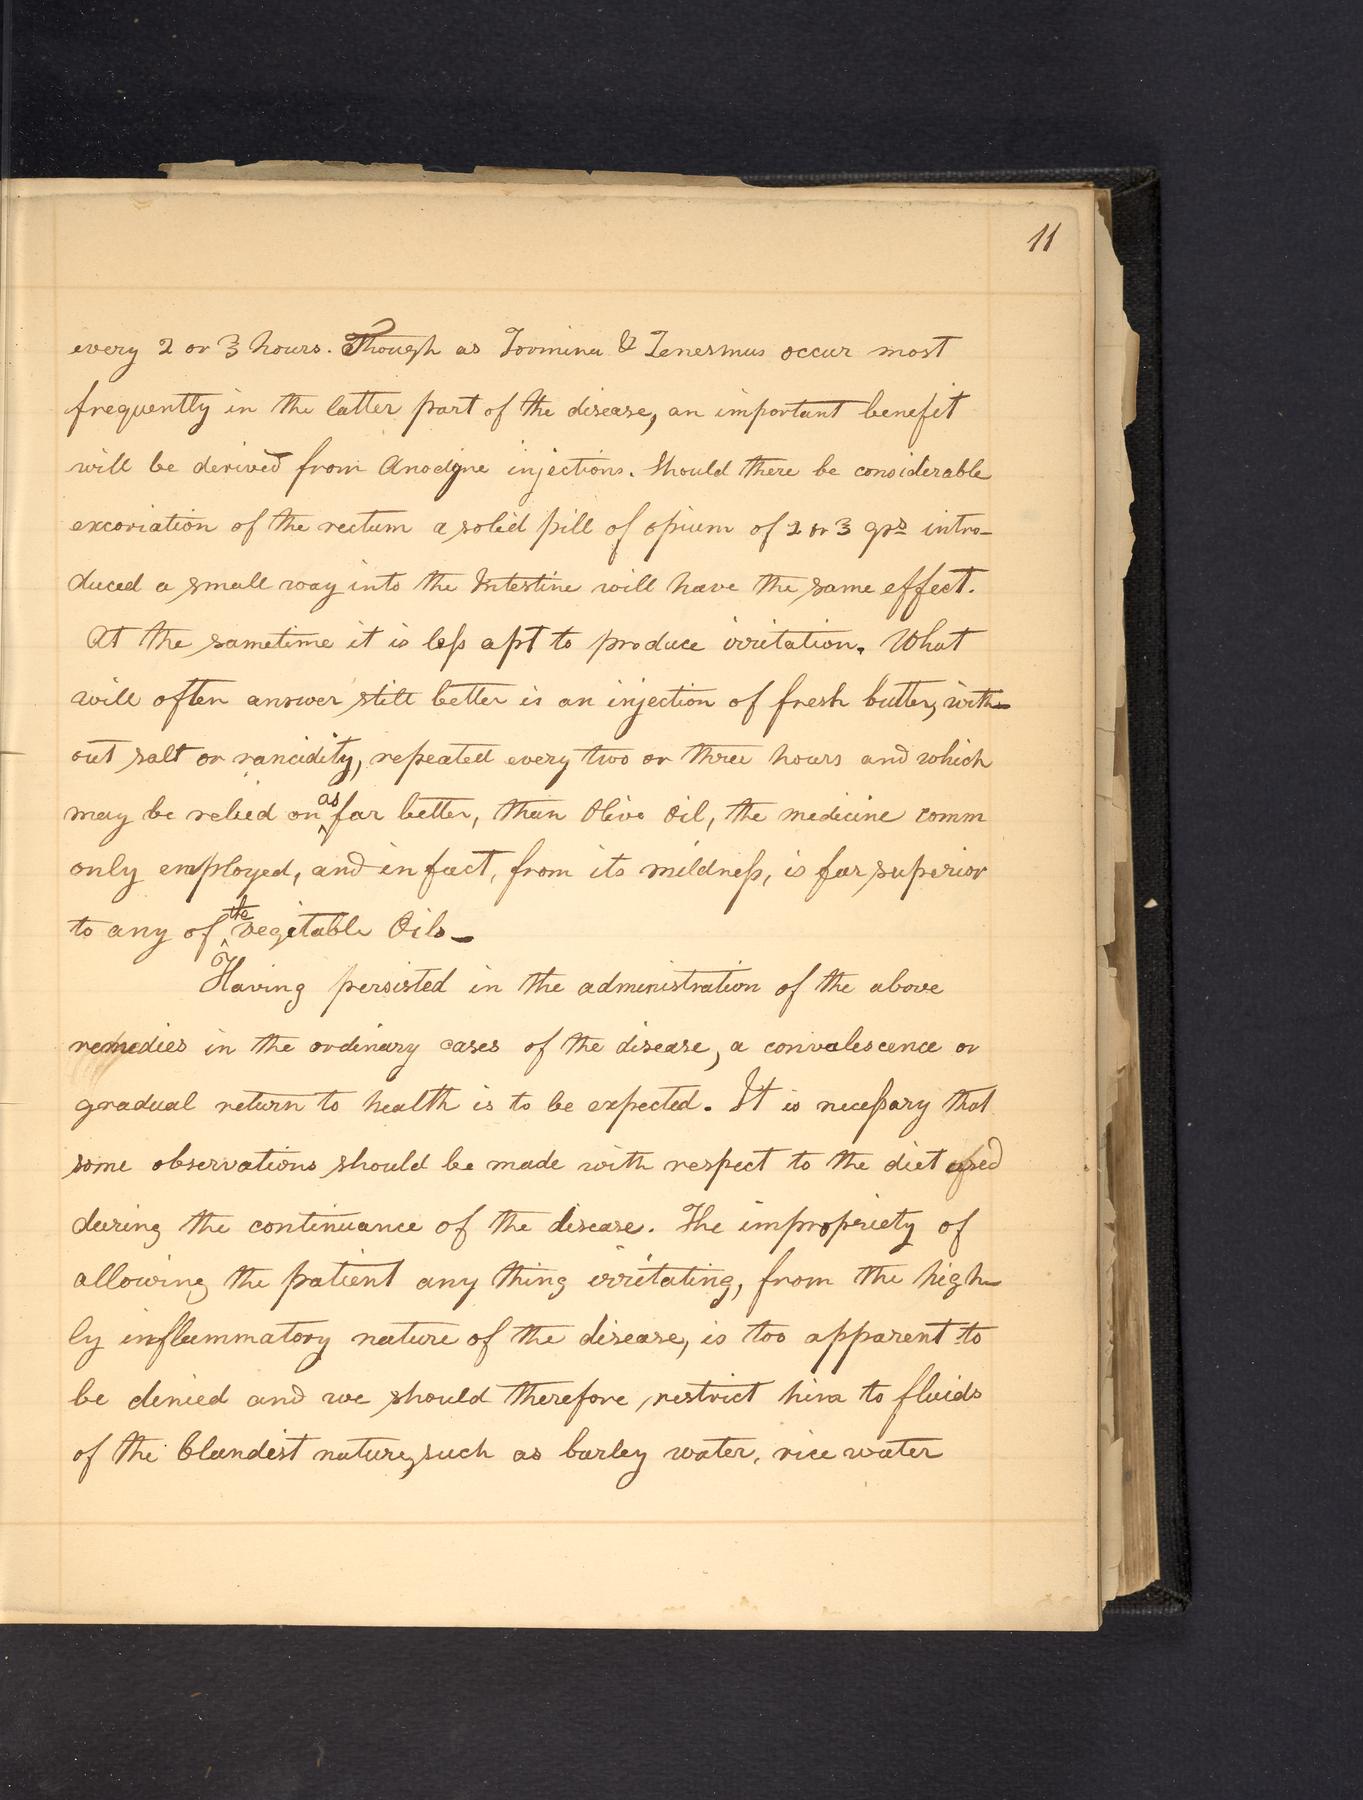 11
every 2 or 3 hours. Though as Tormina & Tenesmus occur most
frequently in the latter part of the disease, an important benefit
will be derived from Anodyne injections. Should there be considerable
excoriation of the rectum a solid pill of opium of 2 or 3 grs intro-
duced a small way into the Intestine will have the same effect.
At the sametime it is less apt to produce irritation. What
will often answer still better is an injection of fresh butter, with-
out salt or rancidity, repeated every two or three hours and which
may be relied on as far better, than Olive Oil, the medicine comm
only employed, and in fact, from its mildness, is far superior
to any of the vegitable Oils-
Having persisted in the administration of the above
remedies in the ordinary cases of the disease, a convalescence or
gradual return to health is to be expected. It is necessary that
some observations should be made with respect to the diet used
during the continuance of the disease. The impropriety of
allowing the patient any thing irritating, from the high-
ly inflammatory nature of the disease, is too apparent to
be denied and we should therefore, restrict him to fluids
of the blandest nature, such as barley water, rice water